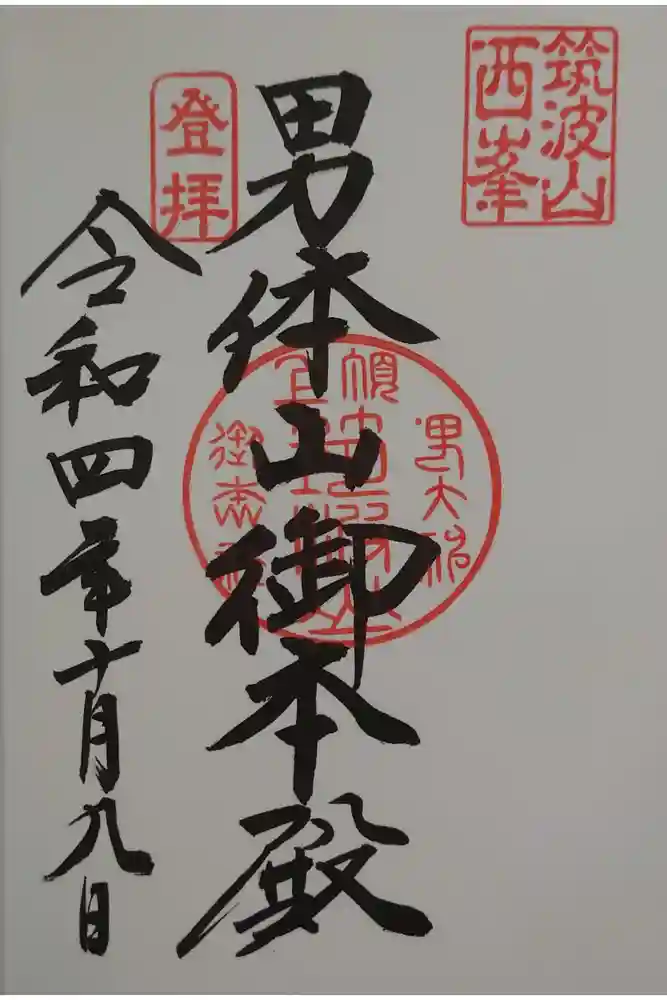 筑波山
西峯
男体山御本殿
登拝
令和四年十月九日